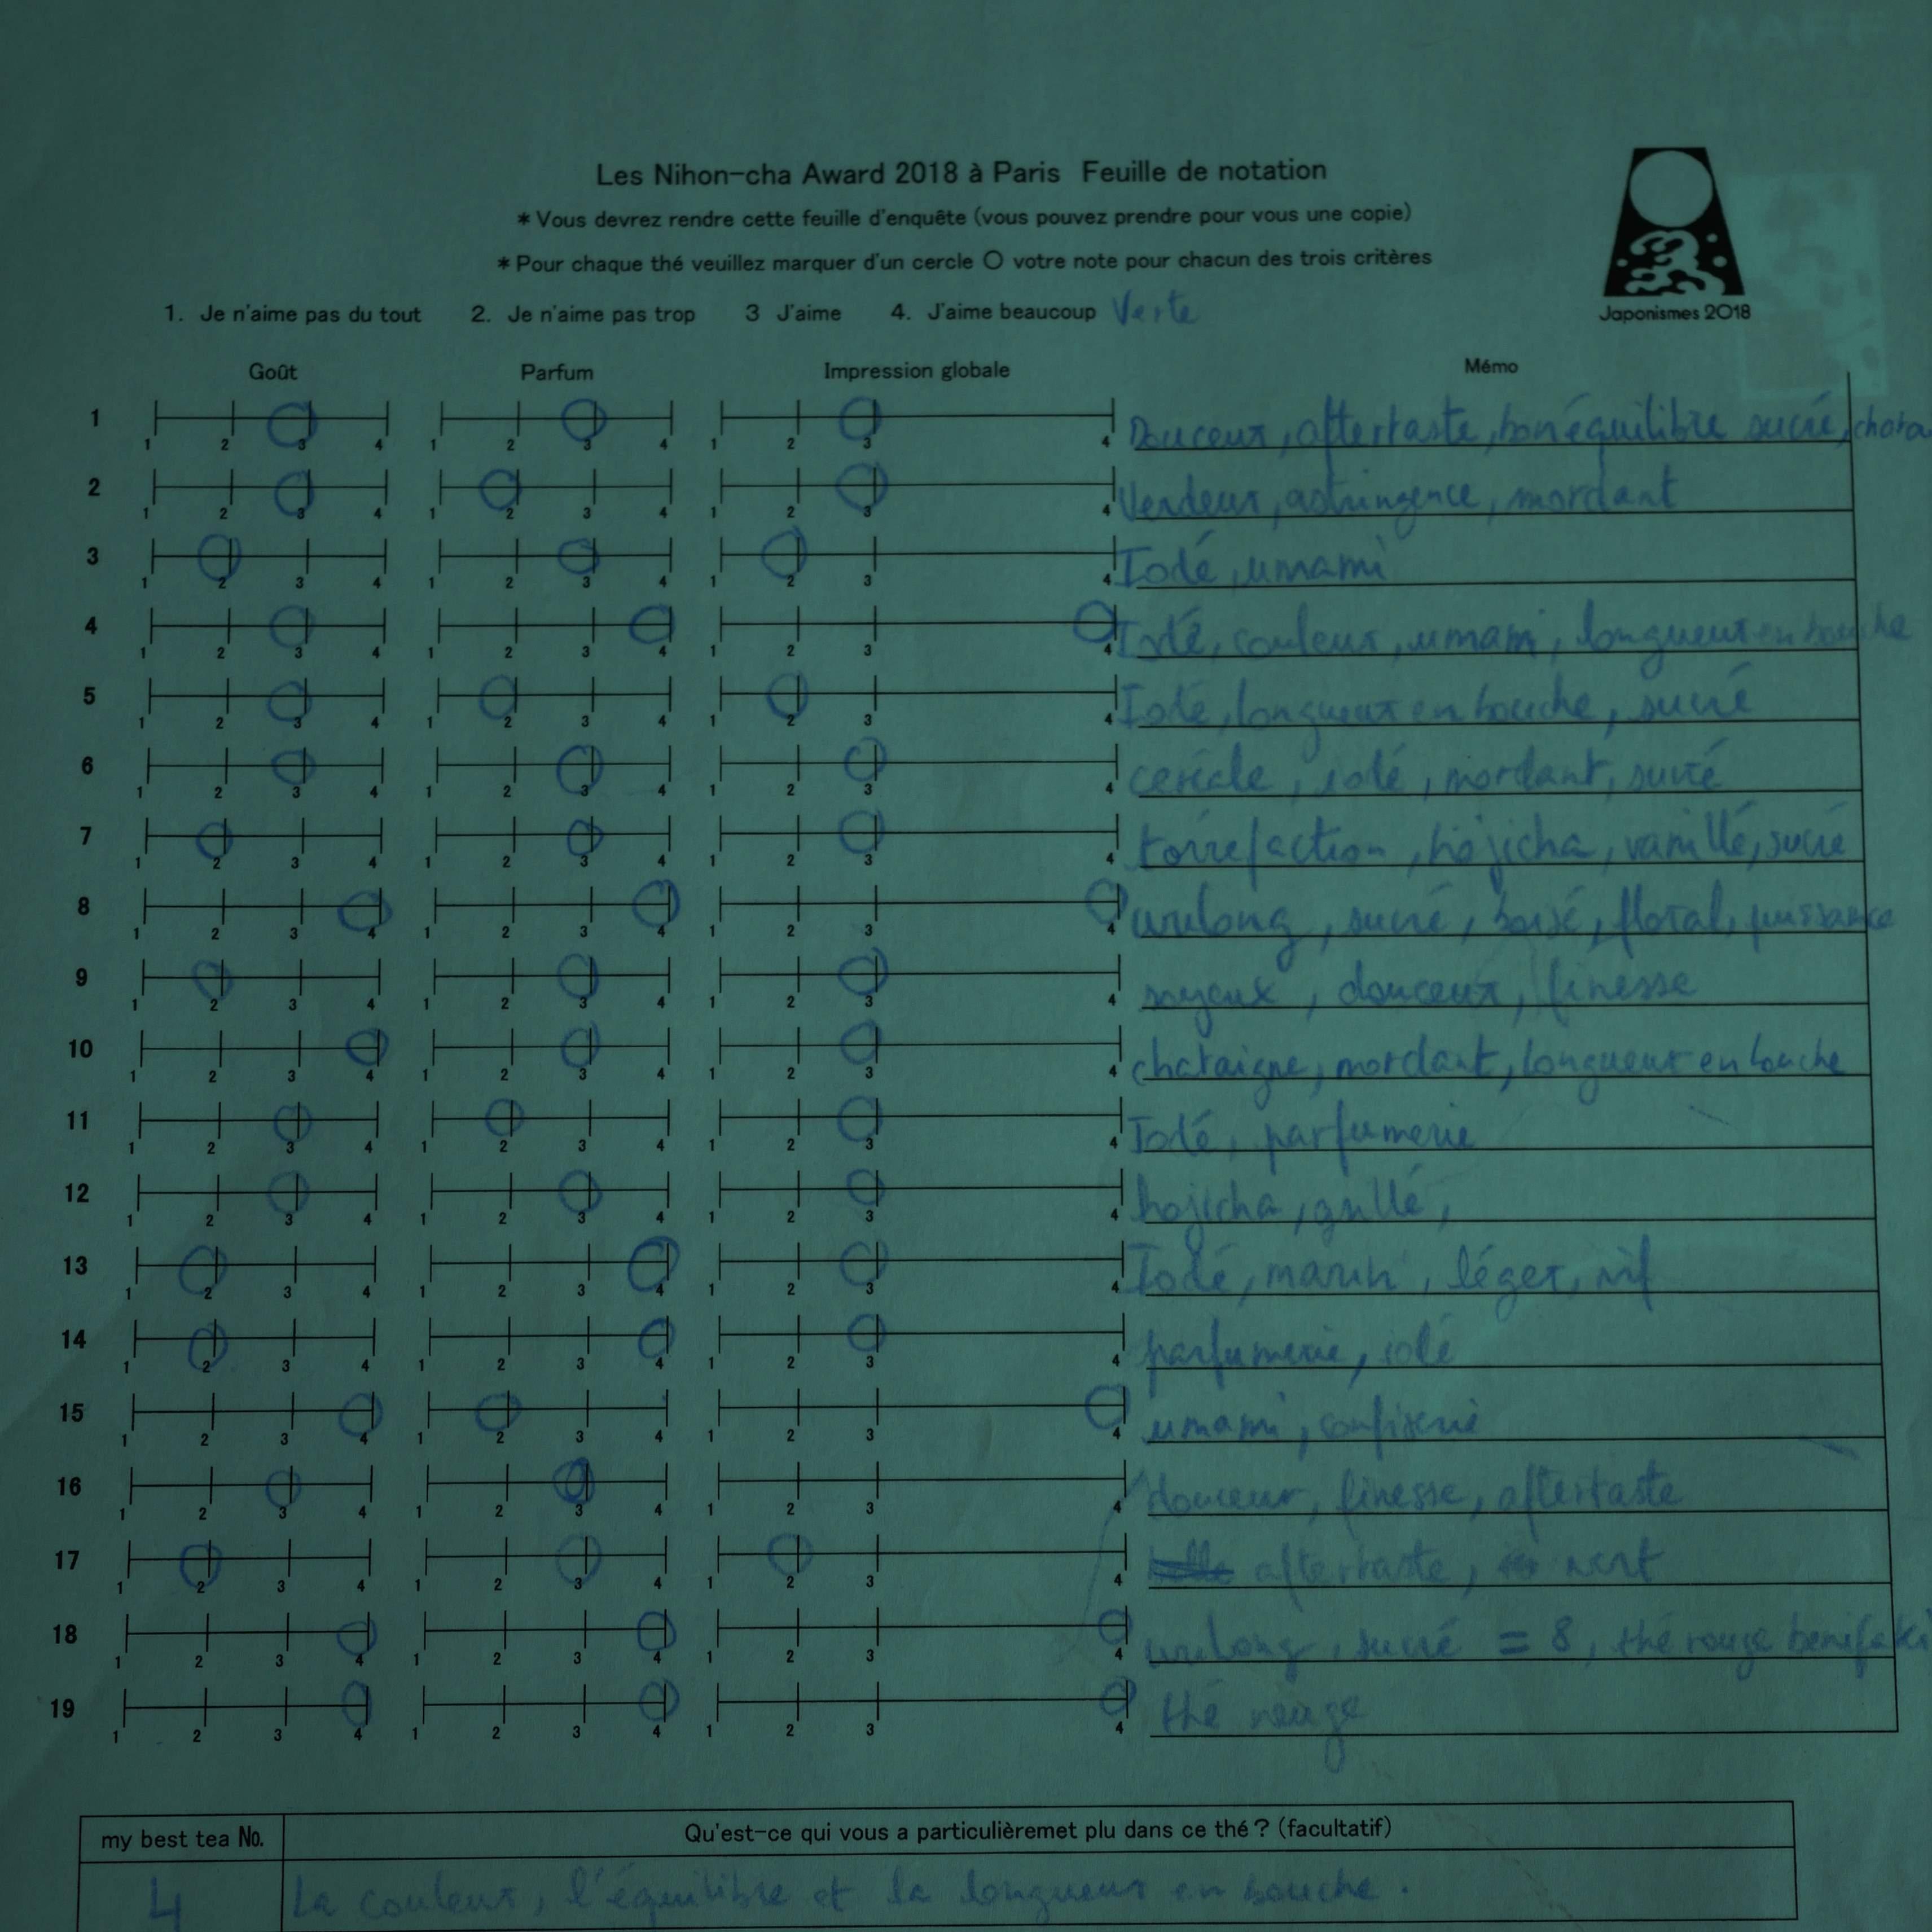 MAFF
Les Nihon-cha Award 2018 à Paris Feuille de notation
* Vous devrez rendre cette feuille d'enquête (vous pouvez prendre pour vous une copie)
* Pour chaque thé veuillez marquer d'un cercle O votre note pour chacun des trois critères
1. Je n'aime pas du tout 2. Je n'aime pas trop 3 J'aime 4. J'aime beaucoup Verte
Japonismes 2018
Goût Parfum Impression globale Mémo
1 1 2 3 4 1 2 3 4 1 2 3 4 Douceur, aftertaste, bon équilibre sucré,
2 1 2 3 4 1 2 3 4 1 2 3 4 Verdeur, astringence, mordant
3 1 2 3 4 1 2 3 4 1 2 3 4 Iodé, umami
4 1 2 3 4 1 2 3 4 1 2 3 4 Iodé, couleur, umami, longueur en bouche
5 1 2 3 4 1 2 3 4 1 2 3 4 Iodé, longueur en bouche, sucré
6 1 2 3 4 1 2 3 4 1 2 3 4 céréale, iodé, mordant, sucré
7 1 2 3 4 1 2 3 4 1 2 3 4 torréfaction, hojicha, vanillé, sucré
8 1 2 3 4 1 2 3 4 1 2 3 4 wulong, sucré, boisé, floral, puissance
9 1 2 3 4 1 2 3 4 1 2 3 4 soyeux, douceur, finesse
10 1 2 3 4 1 2 3 4 1 2 3 4 chataigne, mordant, longueur en bouche
11 1 2 3 4 1 2 3 4 1 2 3 4 Iodé, parfumerie
12 1 2 3 4 1 2 3 4 1 2 3 4 hojicha, grillé,
13 1 2 3 4 1 2 3 4 1 2 3 4 Iodé, marin, léger, vif
14 1 2 3 4 1 2 3 4 1 2 3 4 parfumerie, iodé
15 1 2 3 4 1 2 3 4 1 2 3 4 umami, confiserie
16 1 2 3 4 1 2 3 4 1 2 3 4 douceur, finesse, aftertaste
17 1 2 3 4 1 2 3 4 1 2 3 4 aftertaste, vert
18 1 2 3 4 1 2 3 4 1 2 3 4 wulong, sucré = 8, thé rouge
19 1 2 3 4 1 2 3 4 1 2 3 4 thé rouge
my best tea No. Qu'est-ce qui vous a particulièremet plu dans ce thé ? (facultatif)
4 La couleur, l'équilibre et la longueur en bouche.